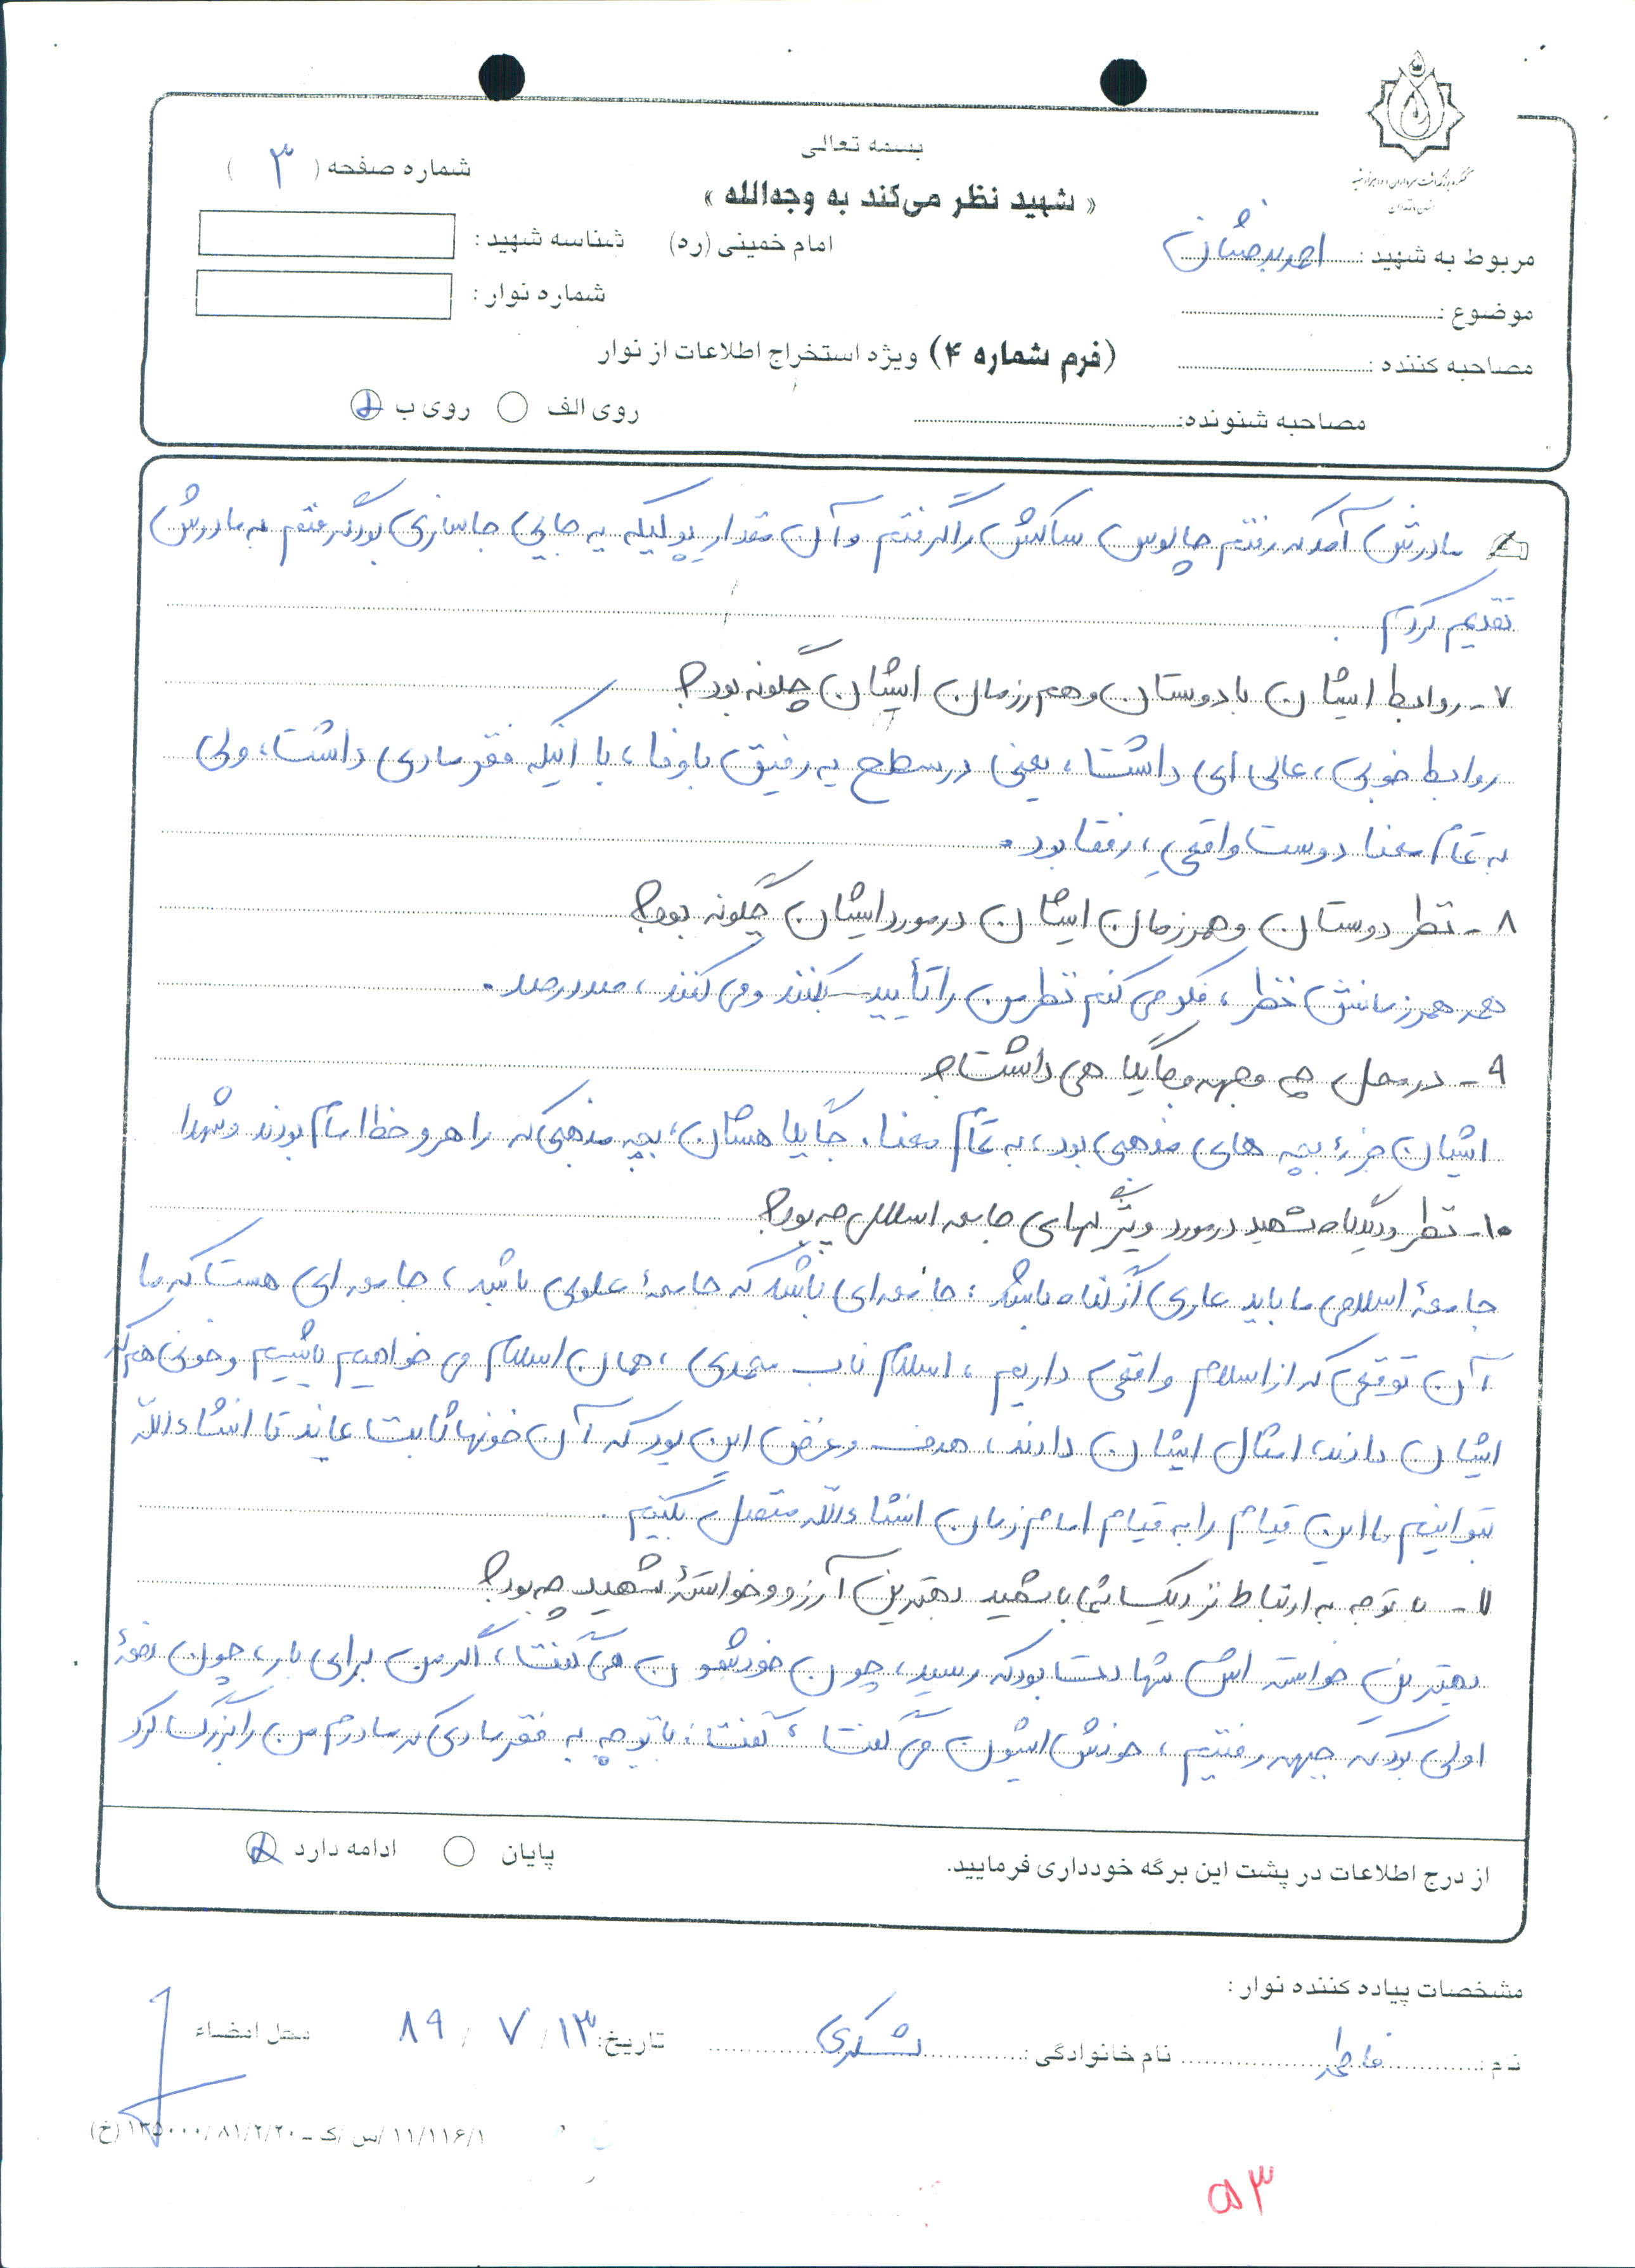 بسمه تعالی
« شهید نظر می‌کند به وجه‌الله »
امام خمینی (ره)
شماره صفحه ( ۳ )
شناسه شهید :
شماره نوار :
مربوط به شهید : احمد
موضوع :
مصاحبه کننده :
(فرم شماره ۴) ویژه استخراج اطلاعات از نوار
مصاحبه شنونده:
روی الف روی ب
مادرش آمد که رفتم چالوس ساکش را گرفتم و آن مقدار پولیکه یه جایی جاسازی بود گرفتم به مادرش
تقدیم کردم
۷- روابط ایشان با دوستان و همرزمان ایشان چگونه بود؟
روابط خوبی، عالی ای داشت، یعنی در سطح یه رفیق باوفا، با اینکه فقر مادی داشت، ولی
به تمام معنا دوست واقعیِ رفقا بود.
۸- نظر دوستان و همرزمان ایشان در مورد ایشان چگونه بود؟
همه همرزمانش نظر، فکر می کنم نظر من را تأیید بکنند و می کنند، صددرصد.
۹- در محل چه وجهه و جایگاهی داشت؟
ایشان جزء بچه های مذهبی بود، به تمام معنا. جایگاهشان، بچه مذهبی که راهرو خط امام بودند و شهدا
۱۰- نظر و دیدگاه شهید در مورد ویژگیهای جامعه اسلامی چه بود؟
جامعهٔ اسلامی ما باید عاری از گناه باشد، جامعه ای باشد که جامعهٔ علوی باشد، جامعه ای هست که ما
آن توقعی که از اسلام واقعی داریم، اسلام ناب محمدی، همان اسلام می خواهیم باشیم و خونی هم که
ایشان دادند، امثال ایشان دادند، هدف و غرض این بود که آن خونها ثابت بماند تا انشاءالله
بتوانیم ما این قیام را به قیام امام زمان انشاءالله متصل بکنیم.
۱۱- با توجه به ارتباط نزدیک شما با شهید بهترین آرزو و خواستهٔ شهید چه بود؟
بهترین خواسته اش شهادت بود که رسید، چون خودشون می گفت، اگر من برای بار، چون دفعهٔ
اولی بود که جبهه رفتیم، خودش ایشون می گفت، گفت: با توجه به فقر مادی که مادرم من را بزرگ کرد
از درج اطلاعات در پشت این برگه خودداری فرمایید.
پایان ادامه دارد
مشخصات پیاده کننده نوار :
نام : فاطمه نام خانوادگی : لشکری تاریخ: ۸۹ / ۷ / ۱۳ محل امضاء
۱۱/۱۱۶/۱ /س /ک – ۸۱/۲/۲۰ /۱۳۵۰۰۰ (خ)
۵۳